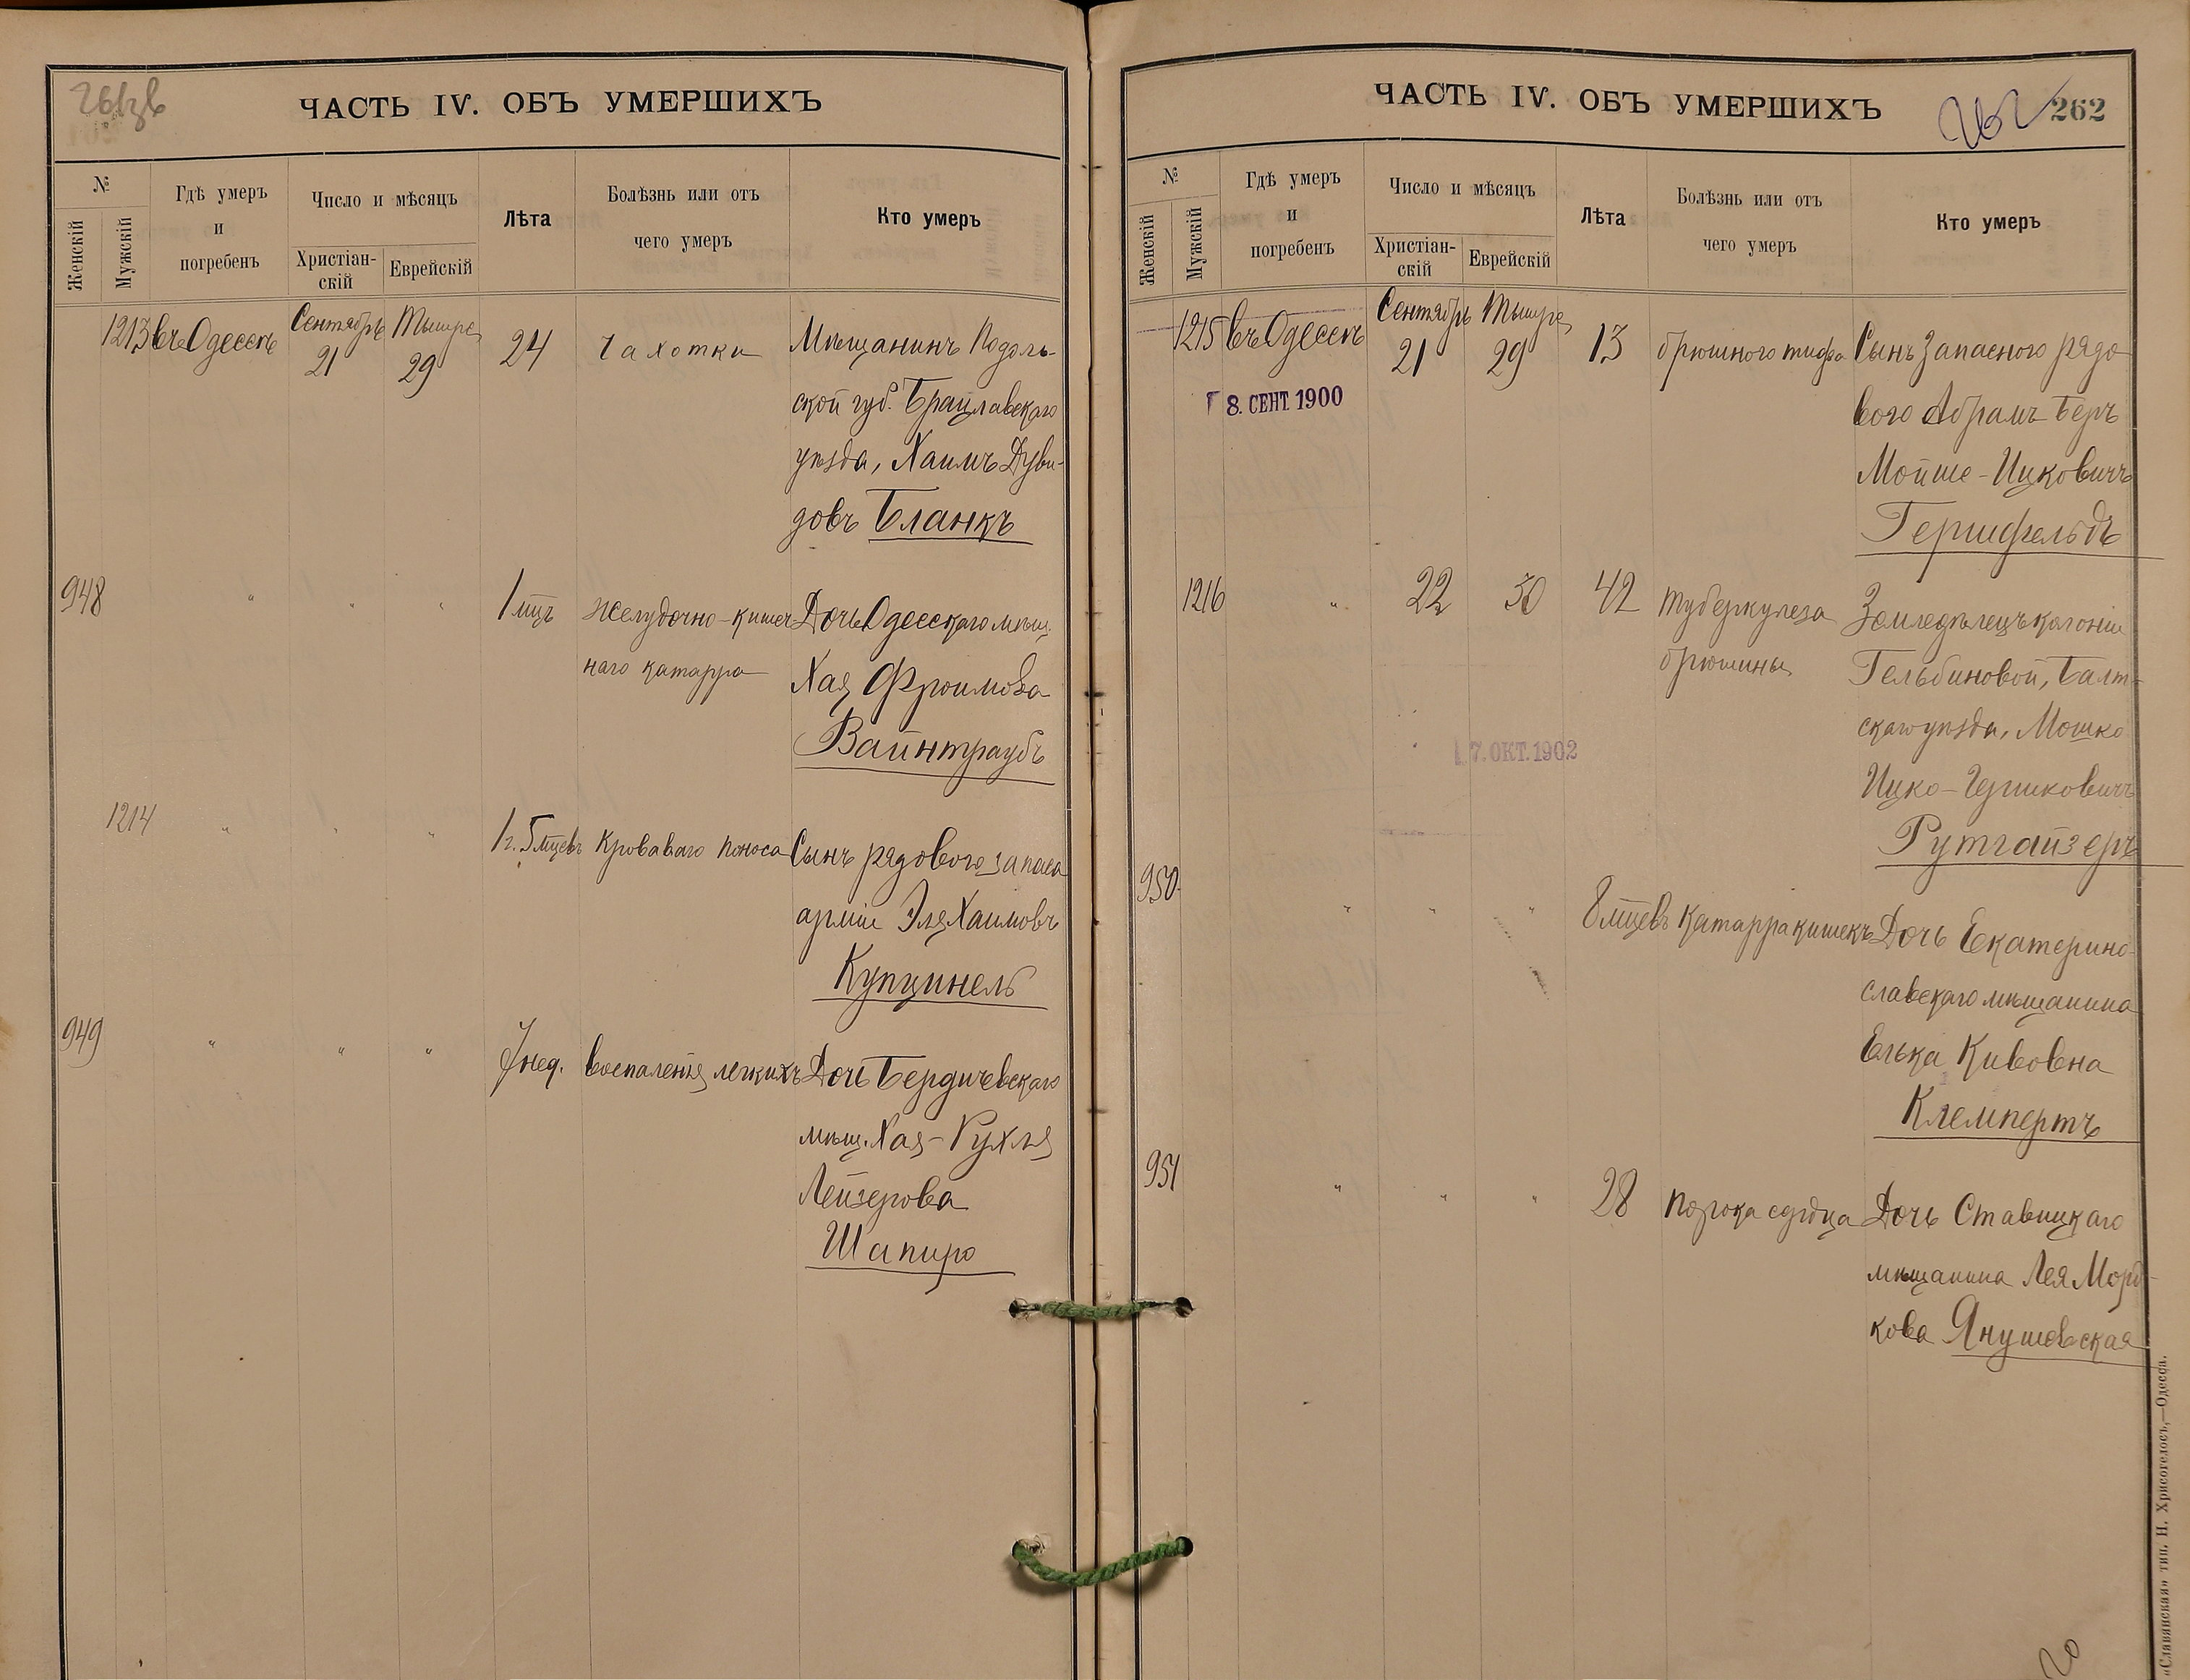 261 зв
ЧАСТЬ IV. ОБЪ УМЕРШИХЪ
№
Женскій
Мужскій
Гдѣ умеръ
и
погребенъ
Число и мѣсяцъ
Христіан-
скій
Еврейскій
Лѣта
Болѣзнь или отъ
чего умеръ
Кто умеръ
1213 въ Одессѣ Сентябрь 21 Тышре 29 24 Чахотки Мѣщанинъ Подоль-
ской губ. Брацлавскаго
уѣзда, Хаимъ Дуви-
довъ Бланкъ
948 " " " 1 мцъ Желудочно-кишеч Дочь Одесскаго мѣщ.
наго катарра Хая Фроимова
Вайнтраубъ
1214 " " " 1 г. 5 мцевъ Кроваваго поноса Сынъ рядового запаса
арміи Эля Хаимовъ
Купцинель
949 " " " 7 нед. воспаленія легкихъ Дочь Бердичевскаго
мѣщ. Хая-Рухля
Лейзерова
Шапиро
ЧАСТЬ IV. ОБЪ УМЕРШИХЪ
262 262
№
Женскій
Мужскій
Гдѣ умеръ
и
погребенъ
Число и мѣсяцъ
Христіан-
скій
Еврейскій
Лѣта
Болѣзнь или отъ
чего умеръ
Кто умеръ
1215 въ Одессѣ Сентябрь 21 Тышре 29 13 брюшного тифа Сынъ запасного рядо
8. СЕНТ. 1900 вого Абрамъ-Беръ
Мойше-Ицковичъ
Гершфельдъ
1216 " 22 30 42 туберкулеза Земледѣлецъ колоніи
брюшины Гельбиновой, Балт-
скаго уѣзда, Мошко
7. ОКТ. 1902
Ицко-Гершковичъ
Рутгайзеръ
950 " " " 8 мцевъ Катарра кишекъ Дочь Екатерино-
славскаго мѣщанина
Елька Кивовна
Клемпертъ
951 " " " 28 порока сердца Дочь Ставицкаго
мѣщанина Лея Морд-
кова Янушевская
«Славянская» тип. Н. Хрисогелосъ,—Одесса.